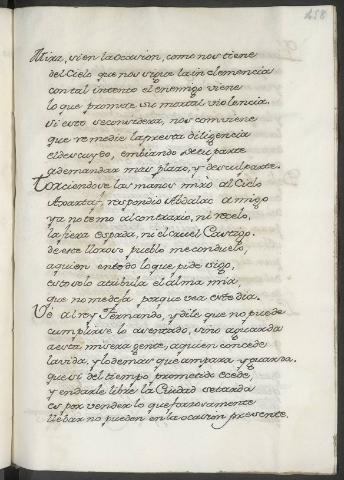 458
Mira, si en la ocasion, como nos tiene
del Cielo que nos sigue la inclemencia
con tal intento el enemigo viene
lo que promete su mortal violencia.
si esto se considera, nos conviene
que remedie la presta diligencia
el descuydo, embiando de tu parte
a demandar mas plazo, y desculparte.
Torciendose las manos miro al Cielo
Axartaf, respondio Abdalac amigo
ya no temo al contrario, ni recelo,
la fiera espada, ni el cruel Castigo.
de este lloroso pueblo me conduelo,
a quien en todo lo que pide sigo,
esto solo atribula el alma mia,
que no me dexa porque vea este dia.
Ve al rey Fernando, y dile que no puede
cumplirse lo asentado, sino aguarda
a esta misera gente, a quien concede
la vida, y lo demas que ampara y guarda.
que si del tiempo prometido ecede
y en darle libre la Ciudad se tarda
es por vender lo que forzosamente
llebar no pueden en la ocasion presente.